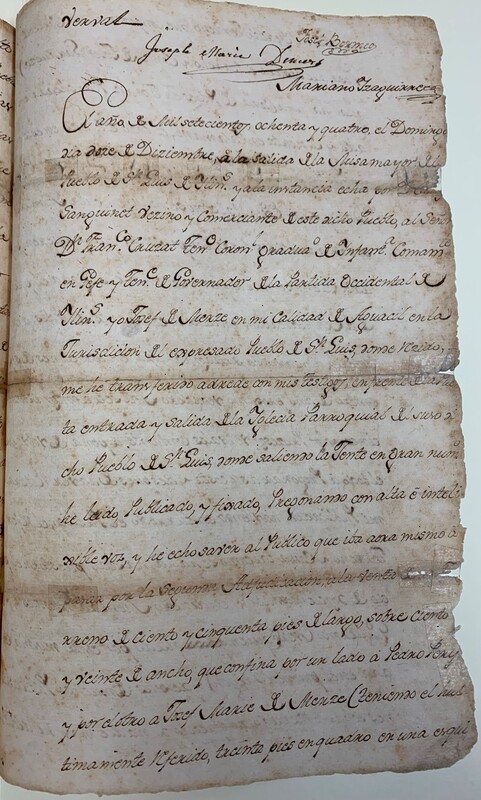 Verval
Josef Bermeo
Joseph Marie Demers
Mariano Yzaguirre
El año de Mil setecientos, ochenta y quatro, el Domingo
dia doze de Diziembre, a la salida de la Misa mayor del
Pueblo de Sn. Luis de Ylins. y a la instancia echa por
Sanguinet Vezino y Comerciante de este dicho Pueblo, al Sor.
Dn. Franco. Cruzat Teno. Coronl. graduado. de Infanta. Comante.
en Gefe y Tenc. de Governador de la Partida Occidental de
Ylins. yo Josef de Menze en mi Calidad de Aguacil en la
Jurisdicion del expresado Pueblo de Sn. Luis, donde Rezido,
me he transferido adrede con mis testigos, en frente de la
ta entrada y salida de la Yglecia Parroquial del suso di
cho Pueblo de Sn. Luis, donde saliendo la Gente en gran num
he leido Publicado, y fixado, Pregonando con alta é inteli
xible voz, y he echo saver al Publico que iba aora mismo à
pasar por la Segunda Adjudicacion a la venta
rreno de ciento y cinquenta pies de largo, sobre ciento
y veinte de ancho, que confina por un lado a Pedro
y por el otro a Josef Marie de Menze (teniendo el
timamente referido, treinta pies en quadro en una esqui